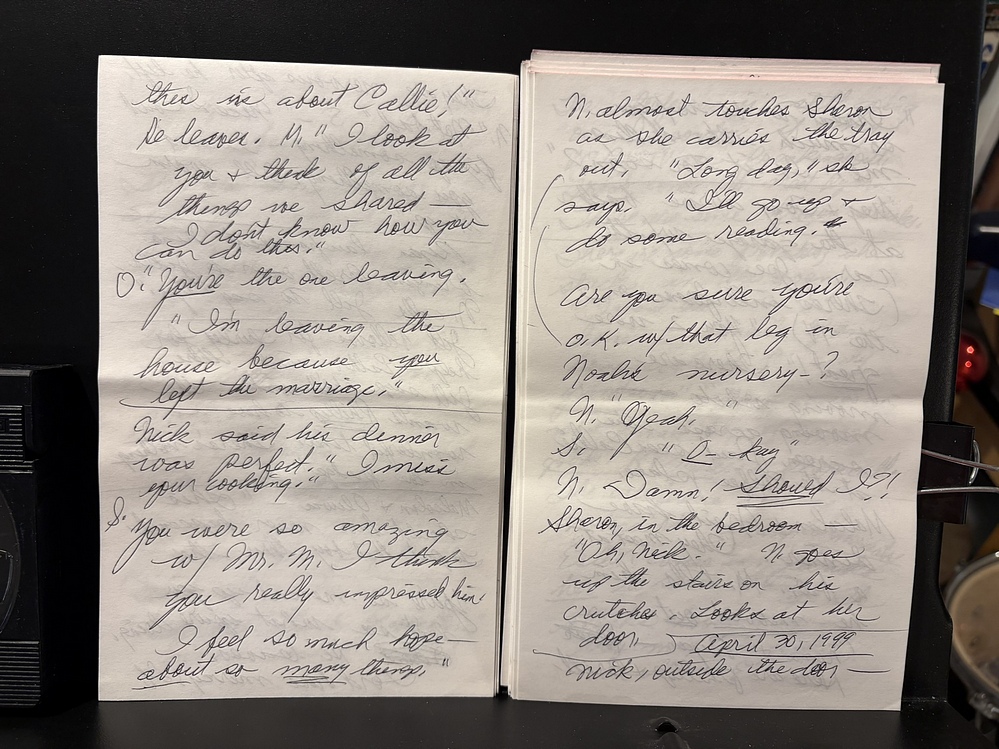 this is about Callie!"
He leaves. M. "I look at
you & think of all the
things we shared —
I don't know how you
can do this."
O: "You're the one leaving.
"I'm leaving the
house because you
left the marriage."
Nick said his dinner
was perfect." I miss
your cooking."
S. You were so amazing
w/ Mr. M. I think
you really impressed him.
I feel so much hope—
about so many things."
N. almost touches Sharon
as she carries the tray
out. "Long day," sh
says. "I'll go up &
do some reading.
Are you sure you're
o.K. w/ that leg in
Noahs nursery-?
N. "Yeah."
S. "O- kay"
N. Damn! Should I?!
Sharon, in the bedroom —
"Oh, Nick." N. goes
up the stairs on his
crutches. Looks at her
door. April 30, 1999
Nick, outside the door —